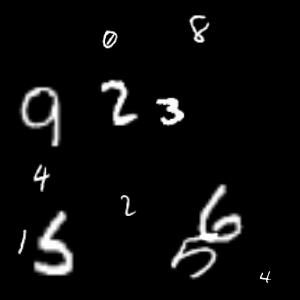 0 8
9 2 3
4
2
1 5 6
5
4